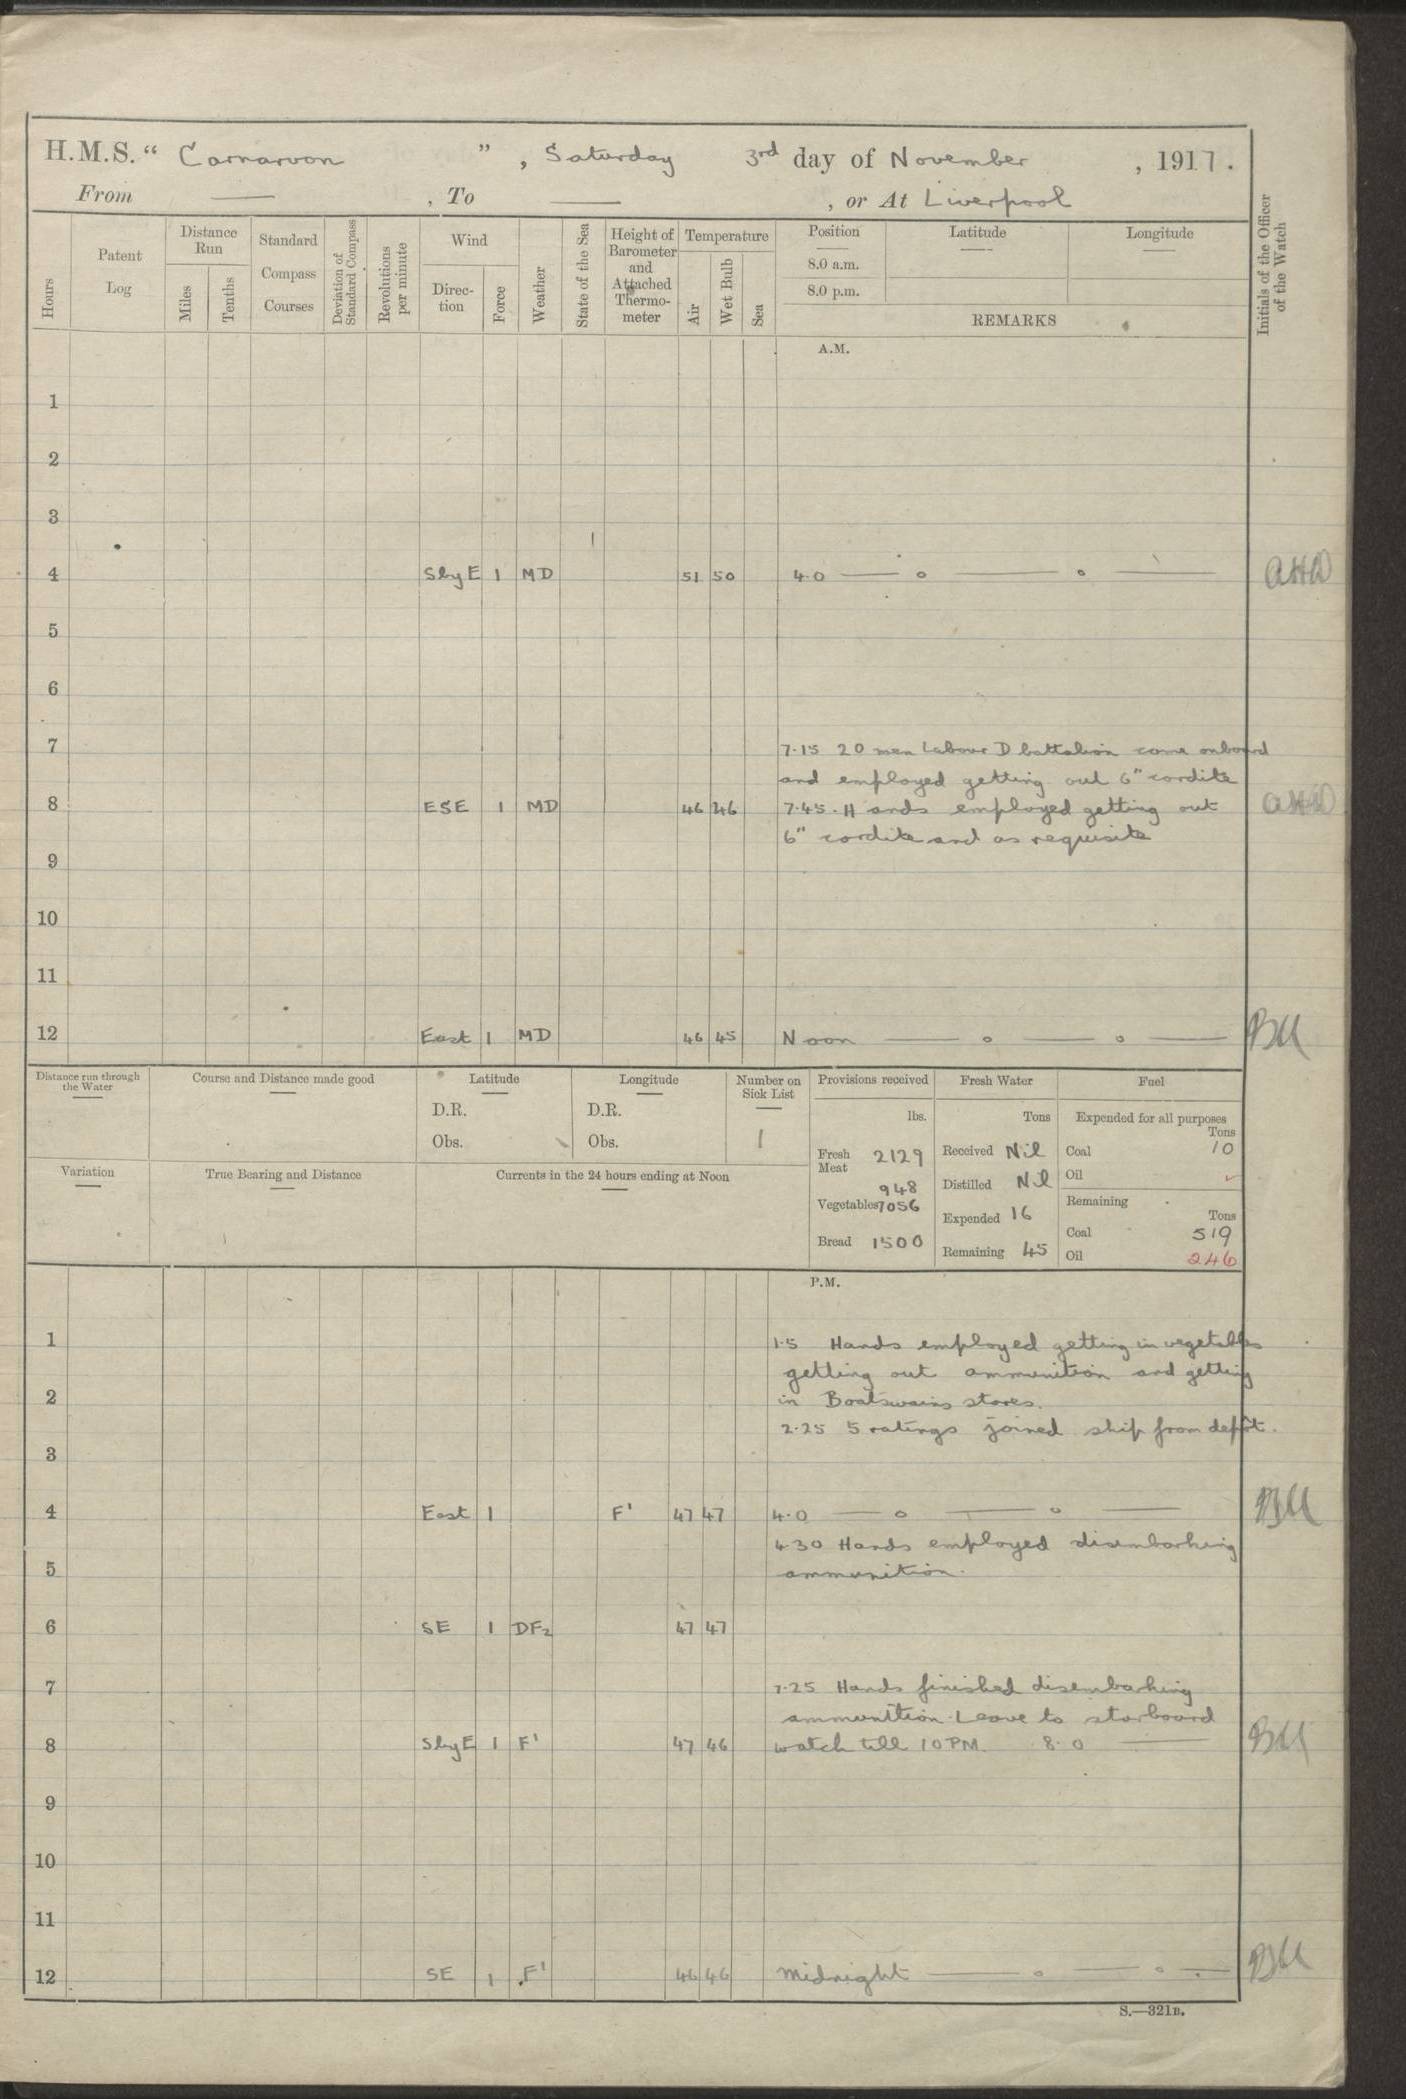 H.M.S. “ Carnarvon ” , Saturday 3rd day of November , 1917.
From — , To — , or At Liverpool
Hours
Patent Log
Distance Run
Miles
Tenths
Standard Compass Courses
Deviation of Standard Compass
Revolutions per minute
Wind
Direc-tion
Force
Weather
State of the Sea
Height of Barometer and Attached Thermo-meter
Temperature
Air
Wet Bulb
Sea
Position
8.0 a.m.
8.0 p.m.
Latitude
Longitude
REMARKS
Initials of the Officer of the Watch
A.M.
1
2
3
4 SbyE 1 MD 51 50 4.0 — o — o —
5
6
7 7.15 20 men Labour D battalion come onboard
and employed getting out 6" cordite
8 ESE 1 MD 46 46 7.45. Hands employed getting out
6" cordite and as requisite
9
10
11
12 East 1 MD 46 45 Noon — o — o — BM
Distance run through the Water
Course and Distance made good
Latitude
D.R.
Obs.
Longitude
D.R.
Obs.
Number on Sick List
1
Provisions received
lbs.
Fresh Meat 2129
948
Vegetables 7056
Bread 1500
Fresh Water
Tons
Received Nil
Distilled Nil
Expended 16
Remaining 45
Fuel
Expended for all purposes
Tons
Coal 10
Oil
Remaining
Tons
Coal 519
Oil 246
Variation
True Bearing and Distance
Currents in the 24 hours ending at Noon
P.M.
1 1.5 Hands employed getting in vegetables
getting out ammunition and getting
2 in Boatswains stores.
2.25 5 ratings joined ship from depôt.
3
4 East 1 F' 47 47 4.0 — o — o — BM
4.30 Hands employed disembarking
5 ammunition.
6 SE 1 DF2 47 47
7 7.25 Hands finished disembarking
ammunition. Leave to starboard
8 SbyE 1 F' 47 46 watch till 10 PM 8.0 — BM
9
10
11
12 SE 1 F' 46 46 Midnight — o — o — BM
S.—321B.